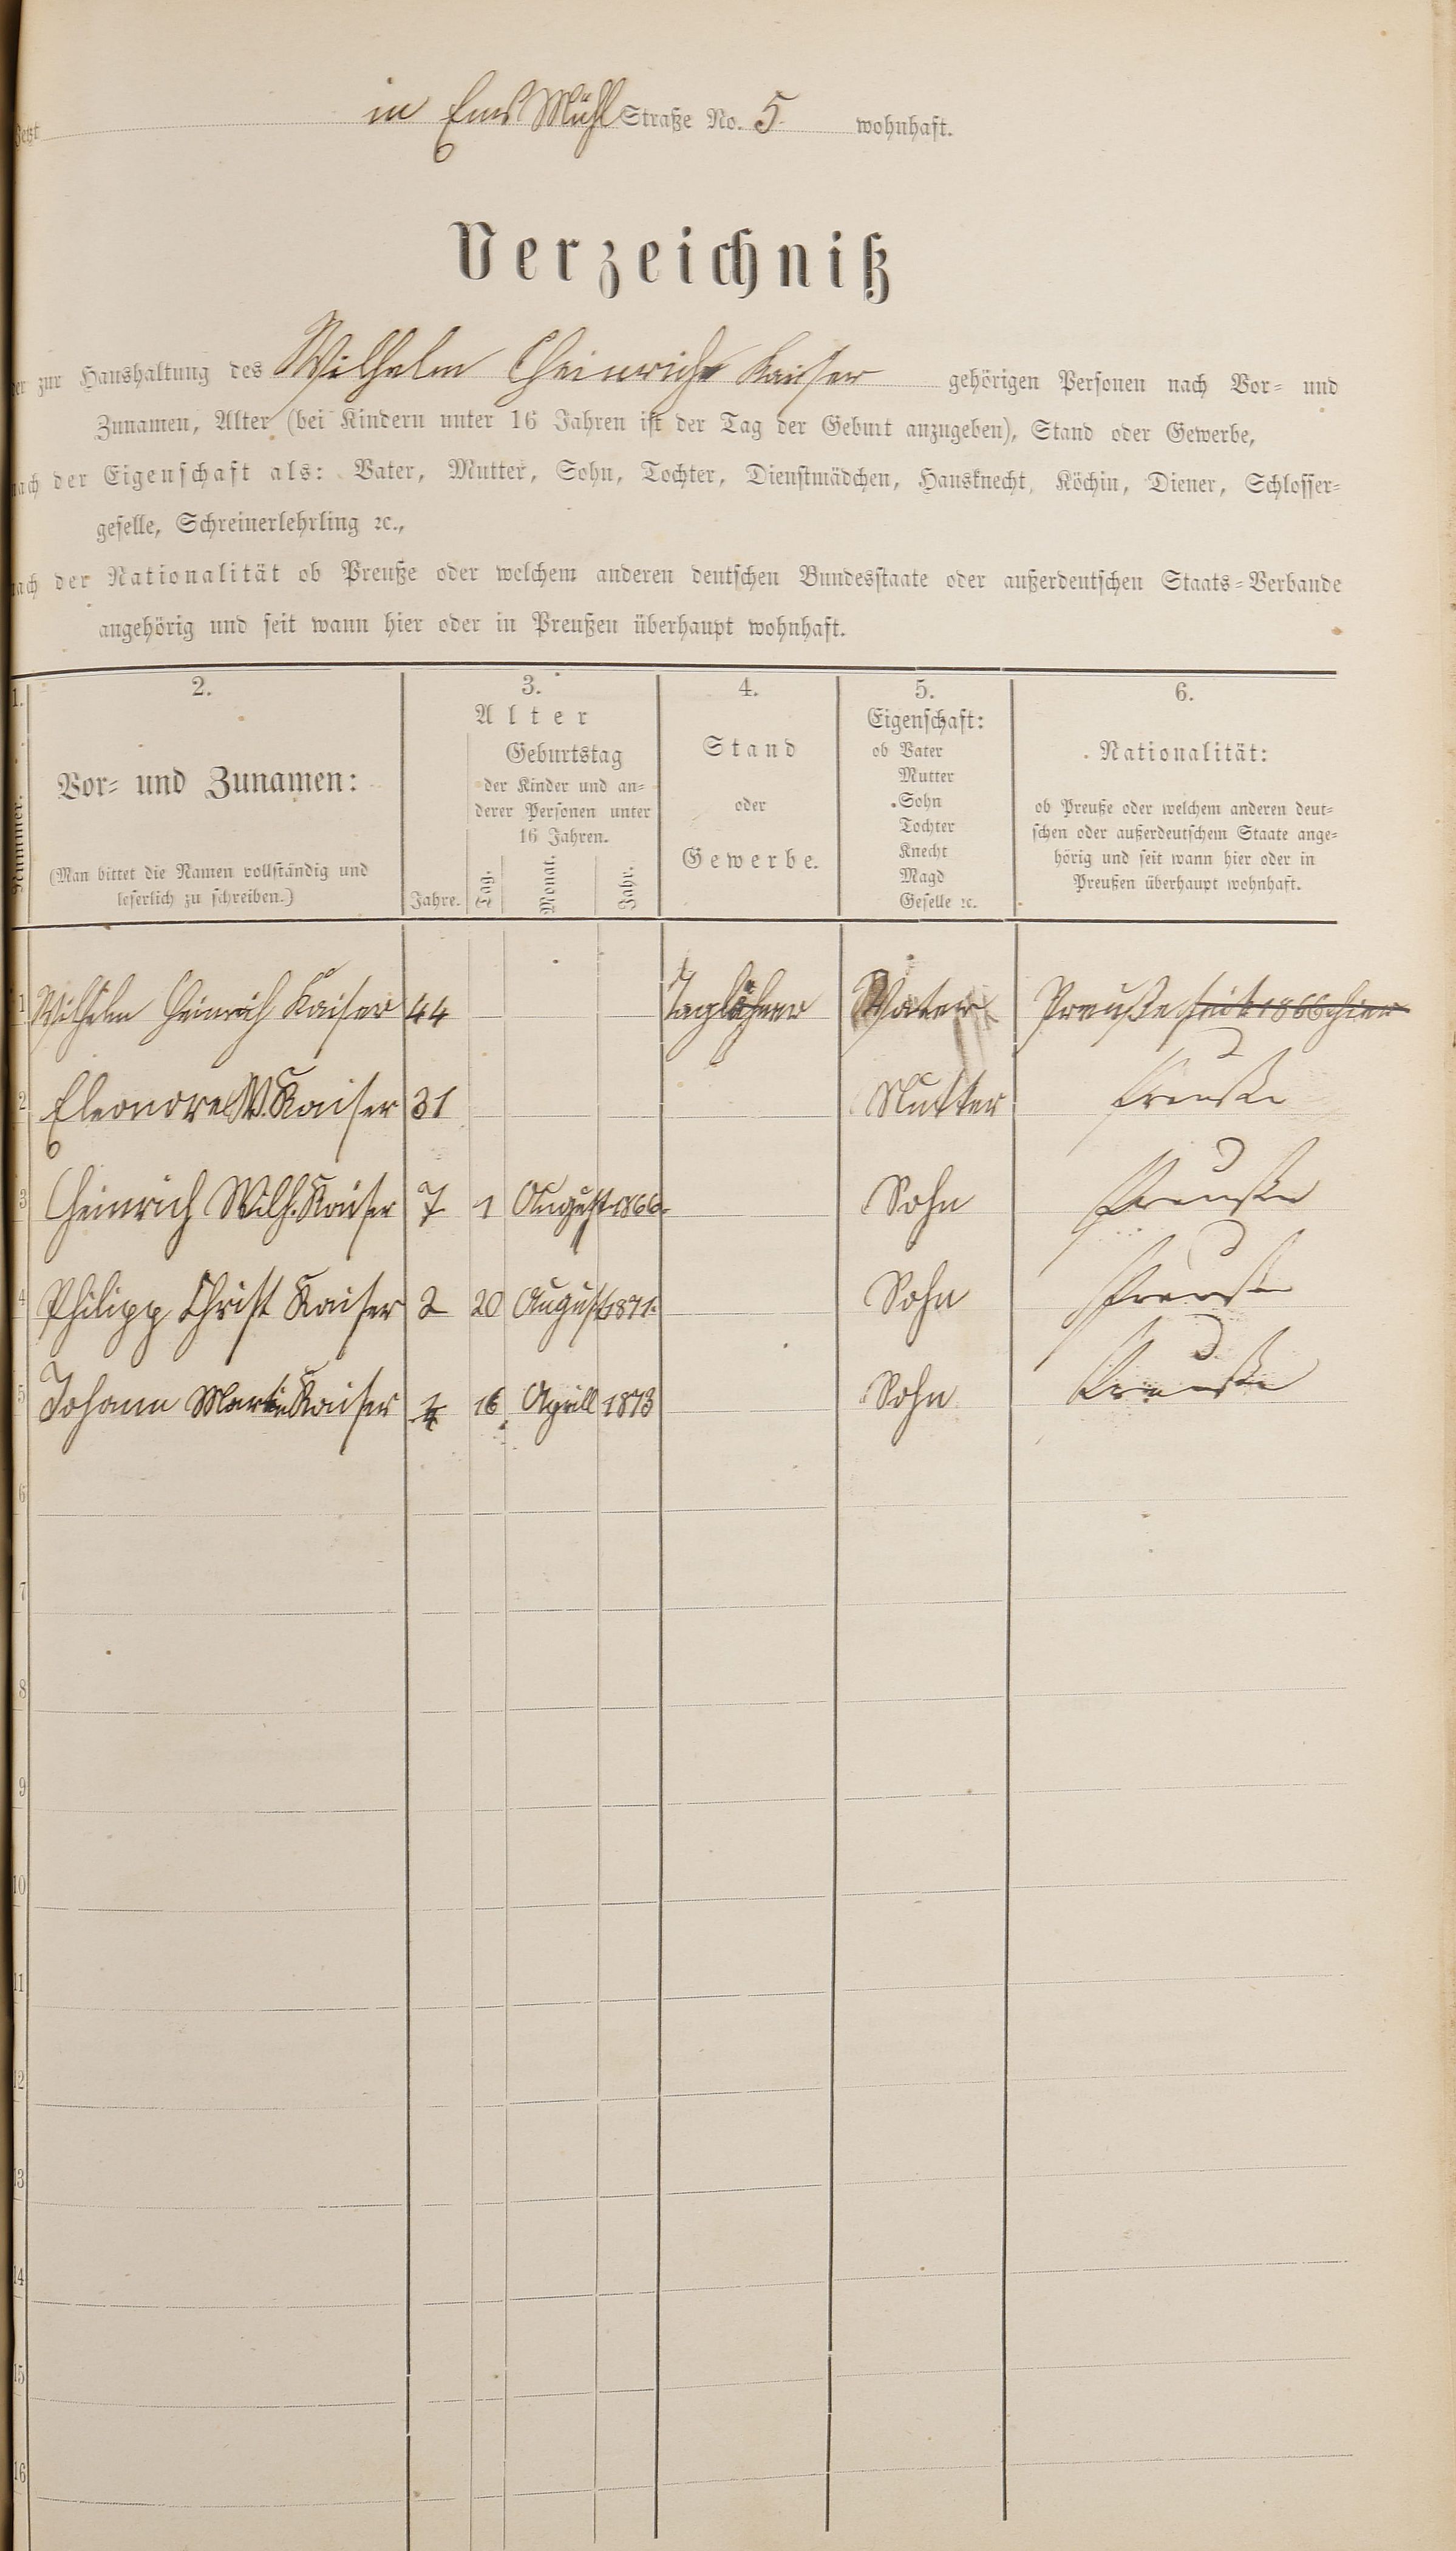 Jetzt in Ems Mühl Straße No. 5 wohnhaft.
Verzeichniß
der zur Haushaltung des Wilhelm Heinrich Kaiser gehörigen Personen nach Vor- und
Zunamen, Alter (bei Kindern unter 16 Jahren ist der Tag der Geburt anzugeben), Stand oder Gewerbe,
nach der Eigenschaft als: Vater, Mutter, Sohn, Tochter, Dienstmädchen, Hausknecht, Köchin, Diener, Schlosser-
geselle, Schreinerlehrling ꝛc.,
nach der Nationalität ob Preuße oder welchem anderen deutschen Bundesstaate oder außerdeutschen Staats-Verbande
angehörig und seit wann hier oder in Preußen überhaupt wohnhaft.
1. 2. 3. 4. 5. 6.
Nummer.
Vor- und Zunamen:
(Man bittet die Namen vollständig und
leserlich zu schreiben.)
Alter
Jahre.
Geburtstag
der Kinder und an-
derer Personen unter
16 Jahren.
Tag. Monat. Jahr.
Stand
oder
Gewerbe.
Eigenschaft:
ob Vater
Mutter
Sohn
Tochter
Knecht
Magd
Geselle ꝛc.
Nationalität:
ob Preuße oder welchem anderen deut-
schen oder außerdeutschem Staate ange-
hörig und seit wann hier oder in
Preußen überhaupt wohnhaft.
1 Wilhelm Heinrich Kaiser 44 Taglöhner Vater Preuße seit 1866 hier
2 Eleonore W. Kaiser 31 Mutter Preuße
3 Heinrich Wilh. Kaiser 7 1 August 1866. Sohn Preuße
4 Philipp Christ Kaiser 2 20 August 1871. Sohn Preuße
5 Johann Martin Kaiser 16 Aprill 1873 Sohn Preuße
6
7
8
9
10
11
12
13
14
15
16